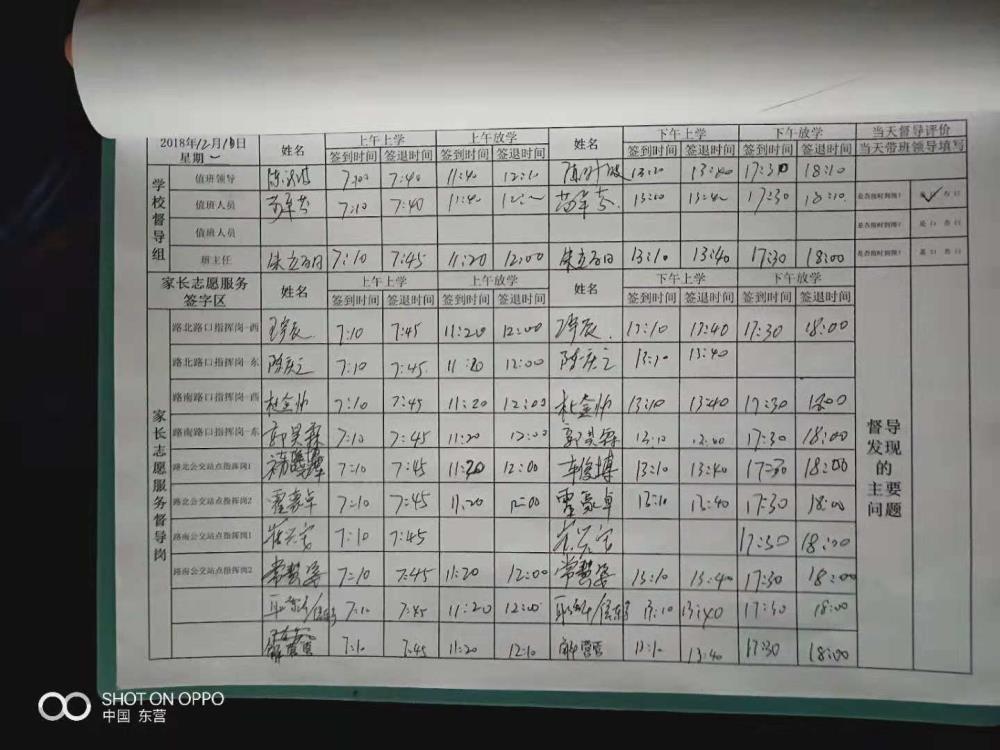 2018年12月10日 姓名 上午上学 上午放学 姓名 下午上学 下午放学 当天督导评价
星期一 签到时间 签退时间 签到时间 签退时间 签到时间 签退时间 签到时间 签退时间 当天带班领导填写
学校督导组
值班领导 7:00 7:40 11:40 12:10 13:20 13:40 17:30 18:10
值班人员 7:10 7:40 11:40 13:00 13:40 17:30 18:10 是否按时到岗? 是口 否口
值班人员 是否按时到岗? 是口 否口
班主任 7:10 7:45 11:20 12:00 13:10 13:40 17:30 18:00 是否按时到岗? 是口 否口
家长志愿服务 姓名 上午上学 上午放学 姓名 下午上学 下午放学
签字区 签到时间 签退时间 签到时间 签退时间 签到时间 签退时间 签到时间 签退时间
家长志愿服务督导岗
路北路口指挥岗-西 7:10 7:45 11:20 12:00 13:10 13:40 17:30 18:00
路北路口指挥岗-东 陈庆之 7:10 7:45 11:20 12:00 陈庆之 13:10 13:40
路南路口指挥岗-西 杜金帅 7:10 7:45 11:20 12:00 杜金帅 13:10 13:40 17:30 18:00
路南路口指挥岗-东 郭昊霖 7:10 7:45 11:20 12:00 郭昊霖 13:10 17:30 18:00
路北公交站点指挥岗1 7:10 7:45 11:20 12:00 车俊博 13:10 13:40 17:30 18:00
路北公交站点指挥岗2 霍豪卓 7:10 7:45 11:20 12:00 霍豪卓 13:10 13:40 17:30 18:00
路南公交站点指挥岗1 崔兴宇 7:10 7:45 崔兴宇 17:30 18:00
路南公交站点指挥岗2 7:10 7:45 11:20 12:00 13:10 13:40 17:30 18:00
7:10 7:45 11:20 12:00 13:10 13:40 17:30 18:00
7:10 7:45 11:20 12:10 13:10 13:40 17:30 18:00
督导
发现
的
主要
问题
SHOT ON OPPO
中国 东营